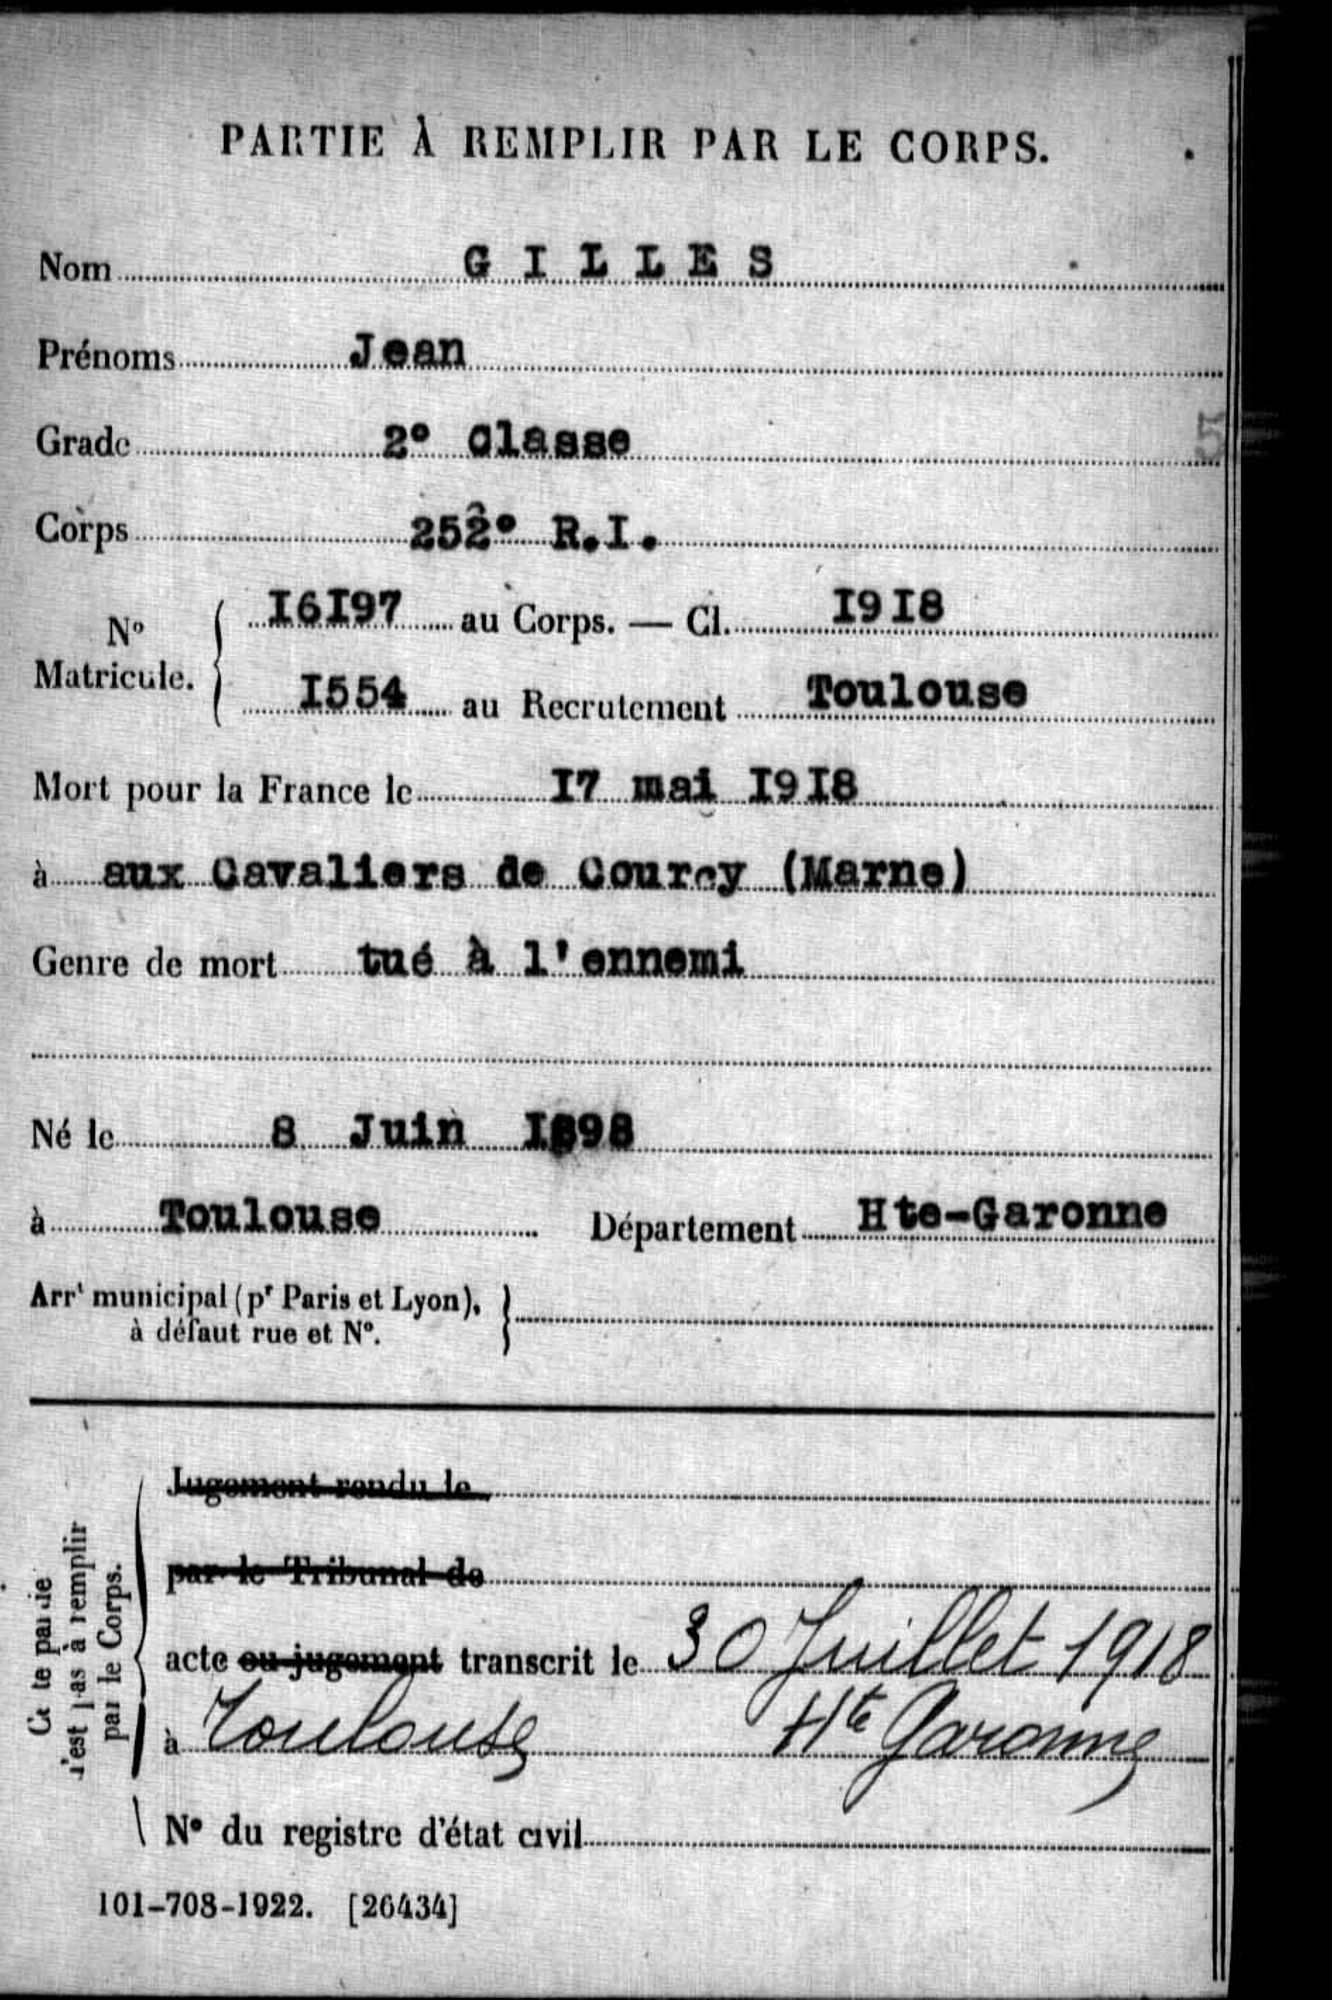 PARTIE À REMPLIR PAR LE CORPS.
Nom GILLES
Prénoms Jean
Grade 2° Classe
Corps 252° R.I.
N° Matricule. I6I97 au Corps. — Cl. I9I8
I554 au Recrutement Toulouse
Mort pour la France le I7 mai I9I8
à aux Cavaliers de Courcy (Marne)
Genre de mort tué à l'ennemi
Né le 8 Juin I898
à Toulouse Département Hte-Garonne
Arrt municipal (pr Paris et Lyon),
à défaut rue et N°.
Jugement rendu le
par le Tribunal de
acte ou jugement transcrit le 30 Juillet 1918
à Toulouse Hte Garonne
N° du registre d'état civil
Ce te partie
n'est pas à remplir
par le Corps.
101-708-1922. [26434]
5